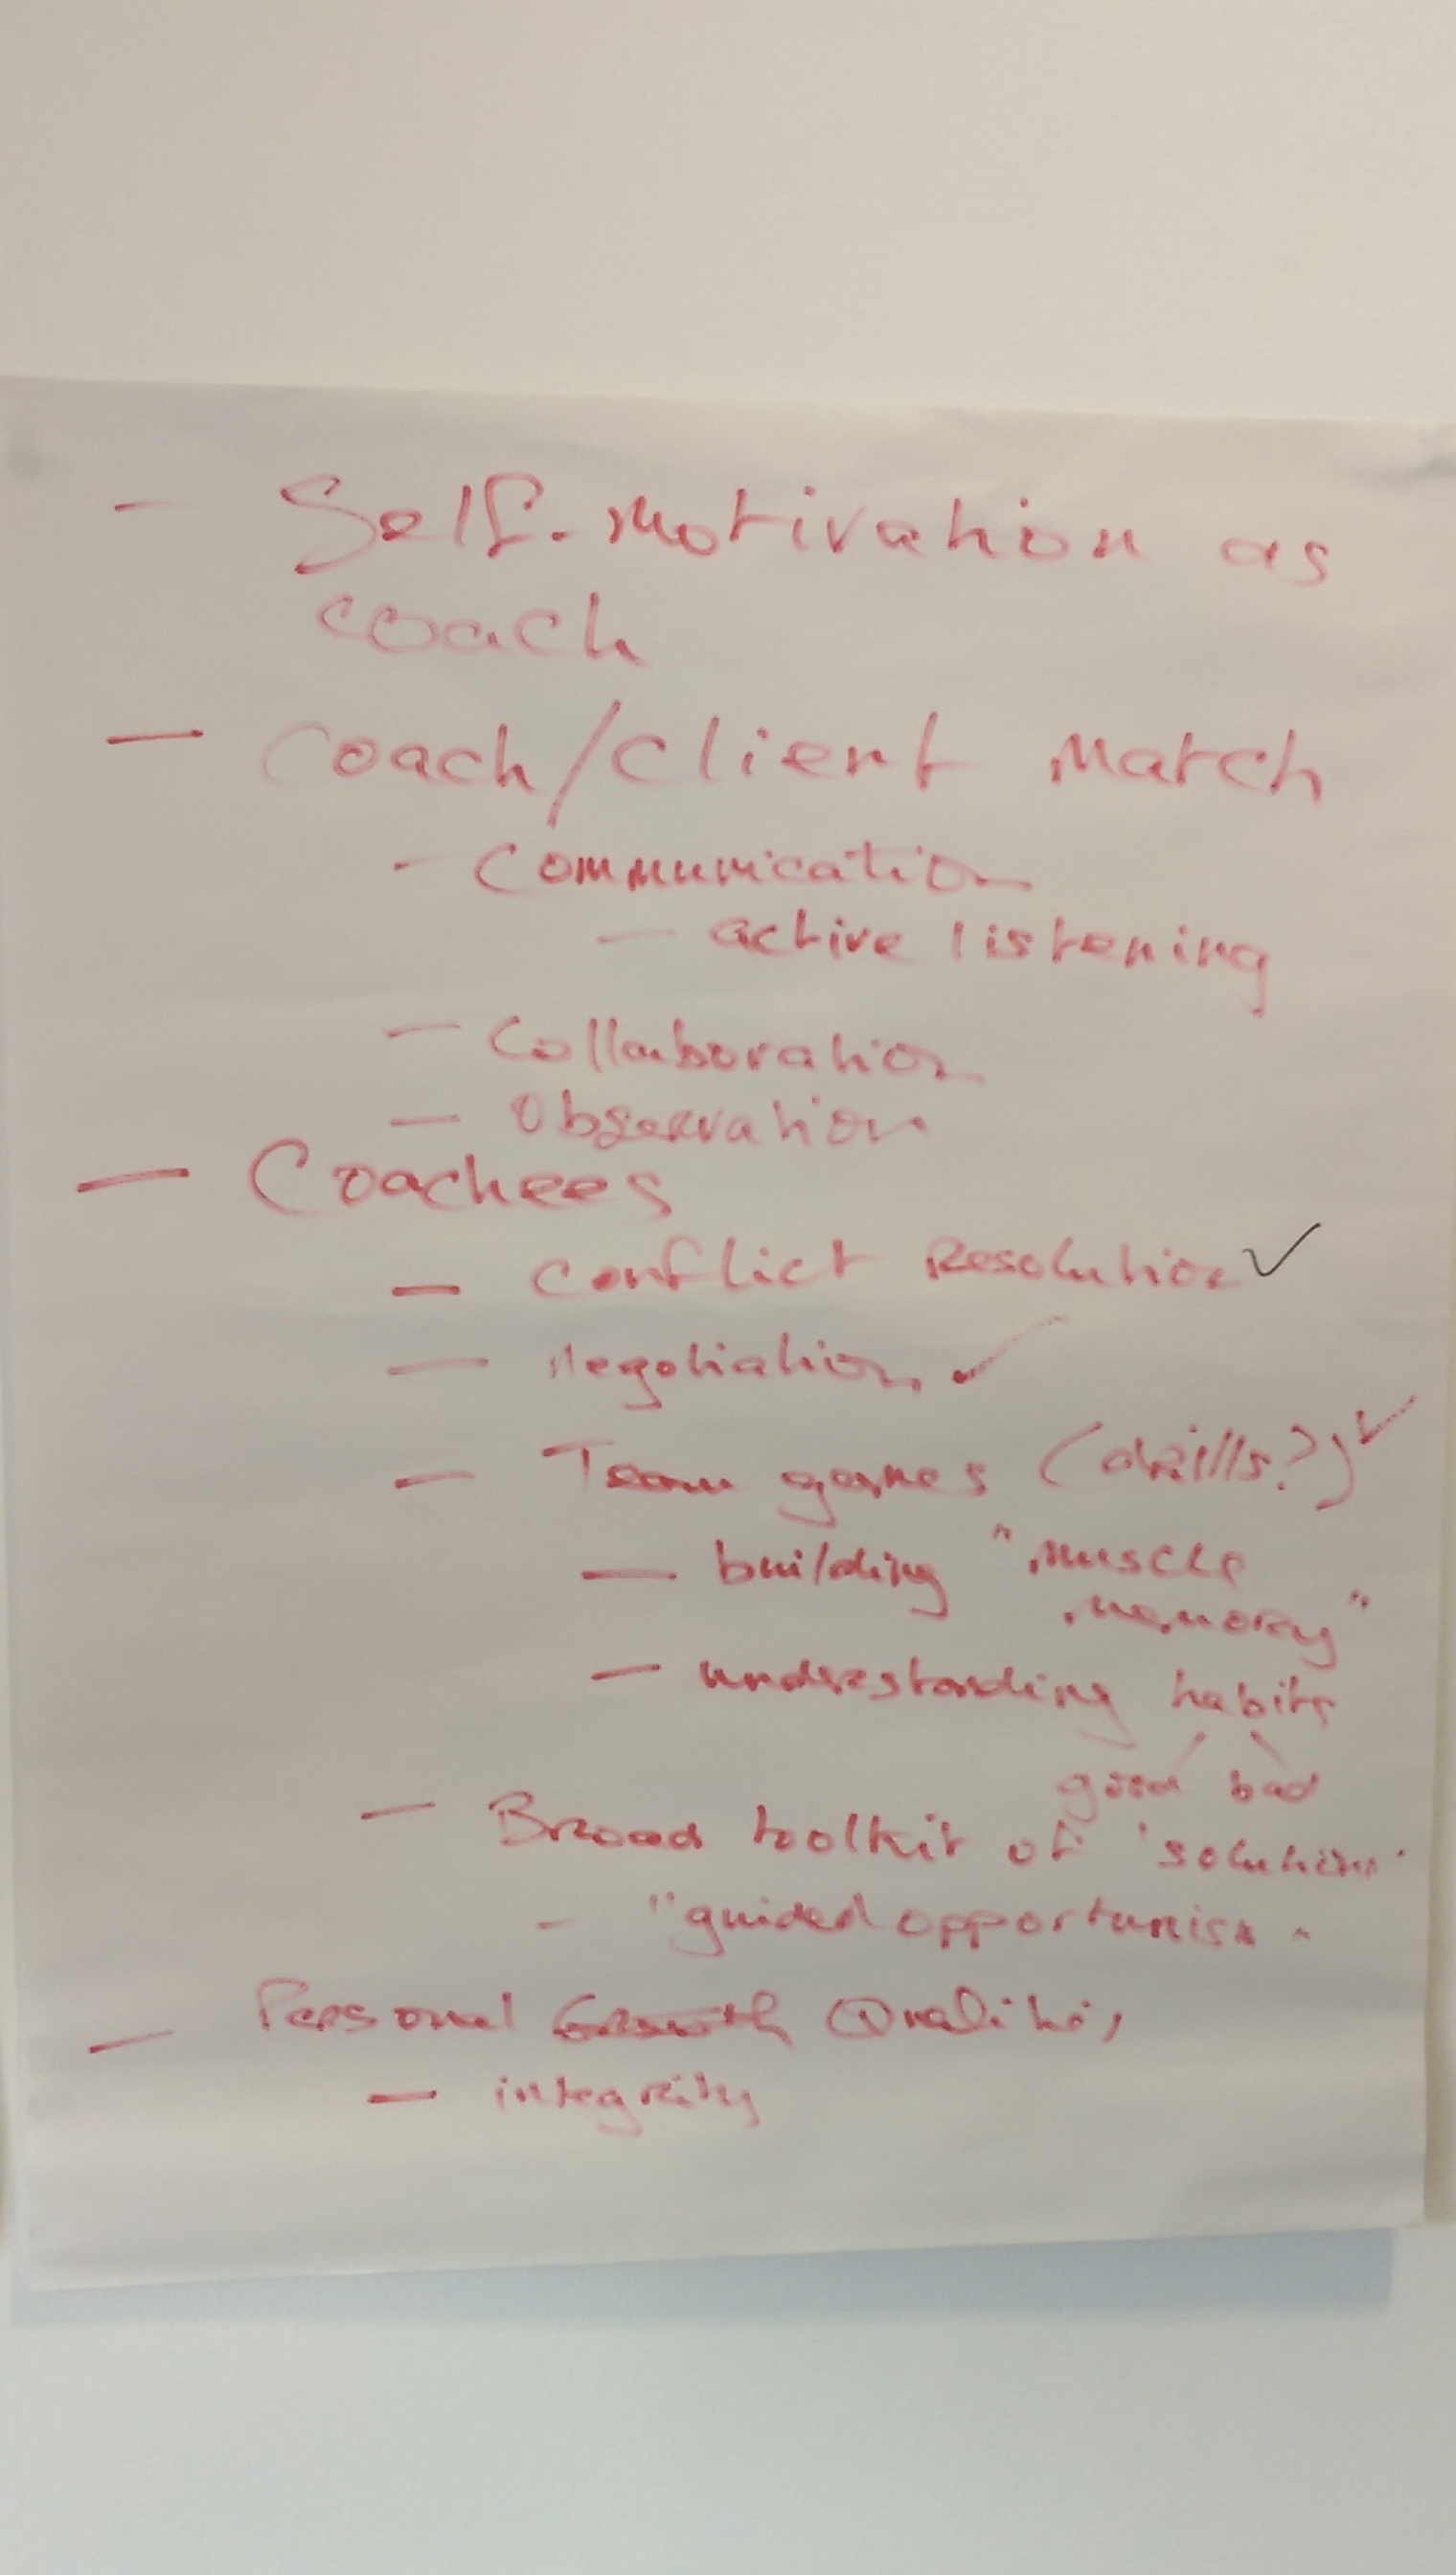 - Self-motivation as
coach
- Coach/Client Match
- Communication
- active listening
- Collaboration
- Observation
- Coachees
- Conflict Resolution ✓
- Negotiation ✓
- Team games (drills?) ✓
- building "muscle
memory"
- understanding habits
good bad
- Broad toolkit of 'solutions'
- "guided opportunism"
- Personal Growth Qualities
- integrity